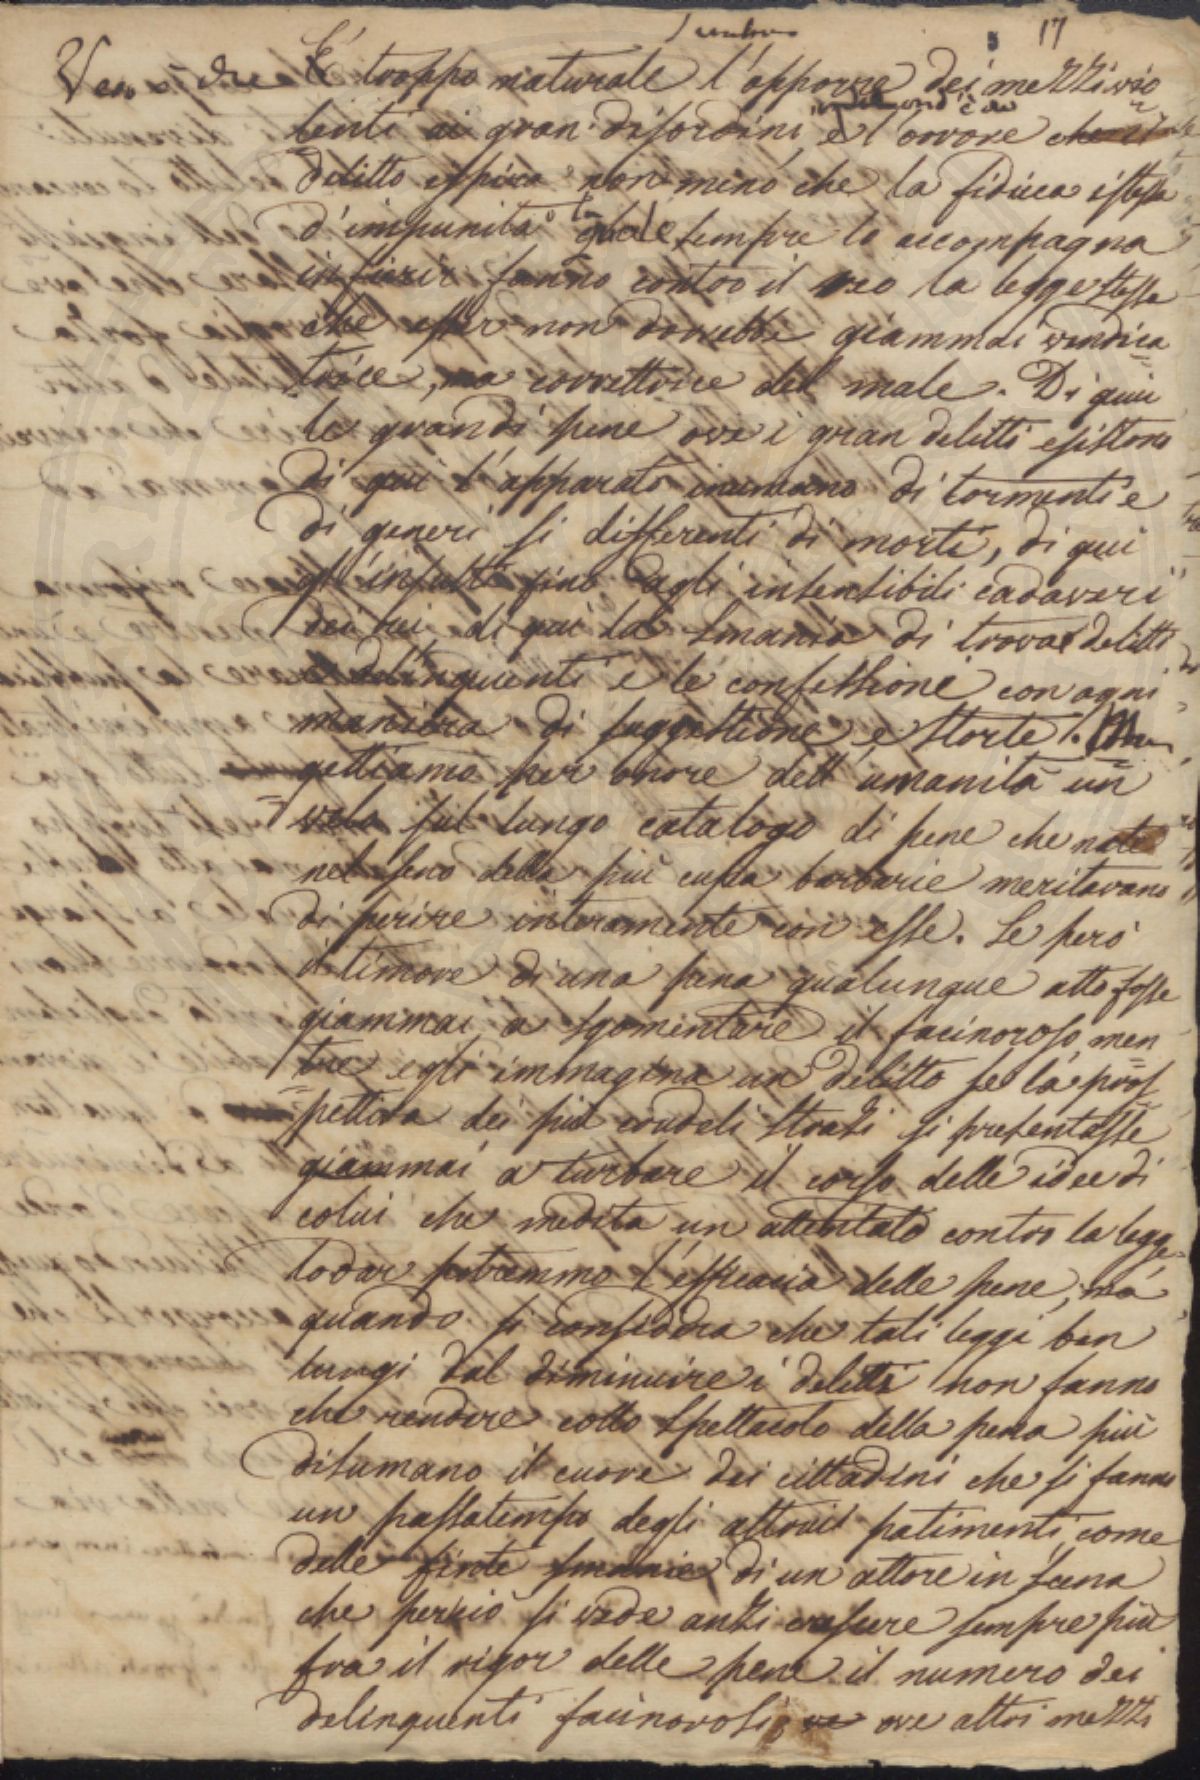 17
Vero è che È troppo naturale l'apporre dei mezzi vio
lenti ai gran disordini, e l'orrore ond'è che il
delitto espira non meno che la fiducia istessa
d'impunità la quale sempre lo accompagna
fanno contro il reo la legge stessa
che esser non dovrebbe giammai vendica
trice, ma correttrice del male. Di qui
le grandi pene ove i gran delitti esistono
di qui l'apparato inumano di tormenti e
di generi sì differenti di morti, di qui
gl'insulti fino agli insensibili cadaveri
dei rei, di qui la smania di trovar delitti
e delinquenti e le confessioni con ogni
maniera di suggestione, e storte.
gettiamo per onore dell'umanità un
velo sul lungo catalogo di pene che nate
nel seno della più cupa barbarie meritavano
di perire interamente con esse. Se però
il timore di una pena qualunque atto fosse
giammai a sgomentare il facinoroso men
tre egli immagina un delitto se la pros
pettiva dei più crudeli strazi si presentasse
giammai a turbare il corso delle idee di
colui che medita un attentato contro la legge
lodar potremmo l'efficacia delle pene, ma
quando si considera che tali leggi ben
lungi dal diminuire i delitti non fanno
che rendere collo spettacolo della pena più
disumano il cuore dei cittadini che si fanno
un passatempo degli altrui patimenti, come
delle finte smanie di un attore in scena
che perciò si vede anzi crescere sempre più
fra il rigor delle pene il numero dei
delinquenti facinorosi, ove altri mezzi